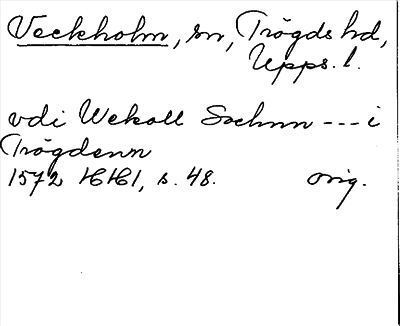 Veckholm, sn, Trögds hd,
Upps. l.
vdi Wekoll Sochnn --- i
Trögdenn
1572 HH1, s. 48. orig.